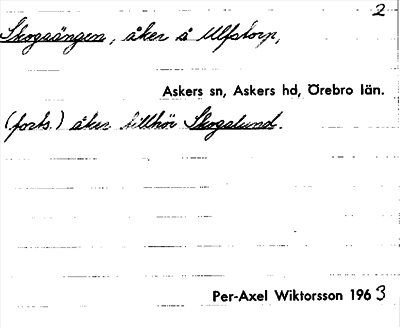 2
Skogaängen, åker å Ulfstorp,
Askers sn, Askers hd, Örebro län.
(forts.) åker tillhör Skogalund.
Per-Axel Wiktorsson 1963